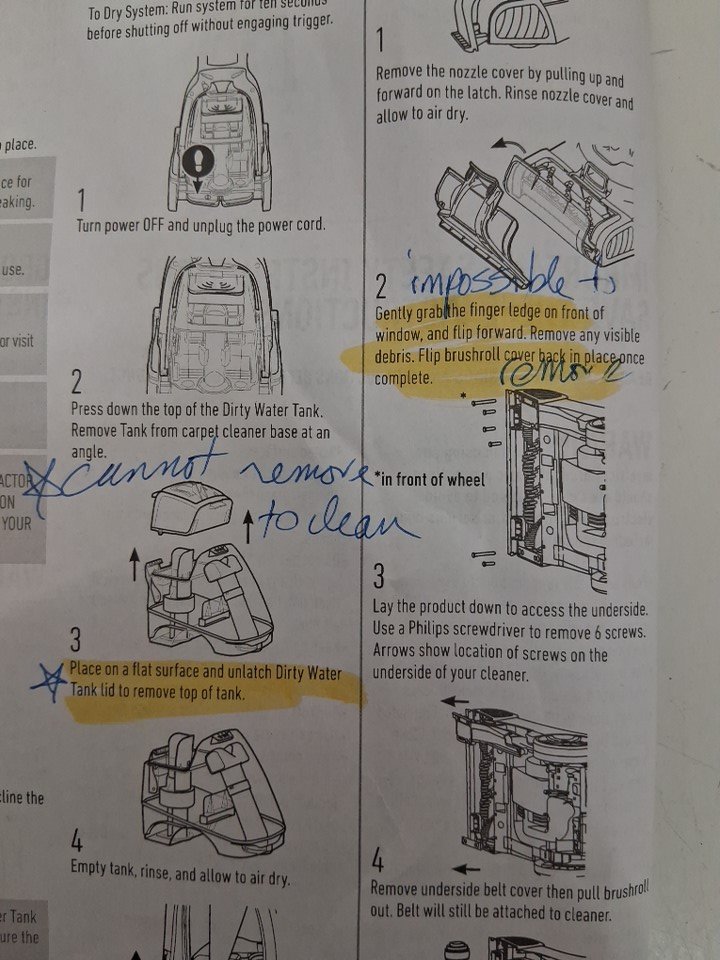 place.
ce for
eaking.
use.
or visit
ACTOR
ON
YOUR
cline the
er Tank
ure the
To Dry System: Run system for ten seconds
before shutting off without engaging trigger.
1
Turn power OFF and unplug the power cord.
2
Press down the top of the Dirty Water Tank.
Remove Tank from carpet cleaner base at an
angle.
cannot remove
to clean
3
Place on a flat surface and unlatch Dirty Water
Tank lid to remove top of tank.
4
Empty tank, rinse, and allow to air dry.
1
Remove the nozzle cover by pulling up and
forward on the latch. Rinse nozzle cover and
allow to air dry.
impossible to
2
Gently grab the finger ledge on front of
window, and flip forward. Remove any visible
debris. Flip brushroll cover back in place once
complete.
remove
*
*in front of wheel
3
Lay the product down to access the underside.
Use a Philips screwdriver to remove 6 screws.
Arrows show location of screws on the
underside of your cleaner.
4
Remove underside belt cover then pull brushroll
out. Belt will still be attached to cleaner.